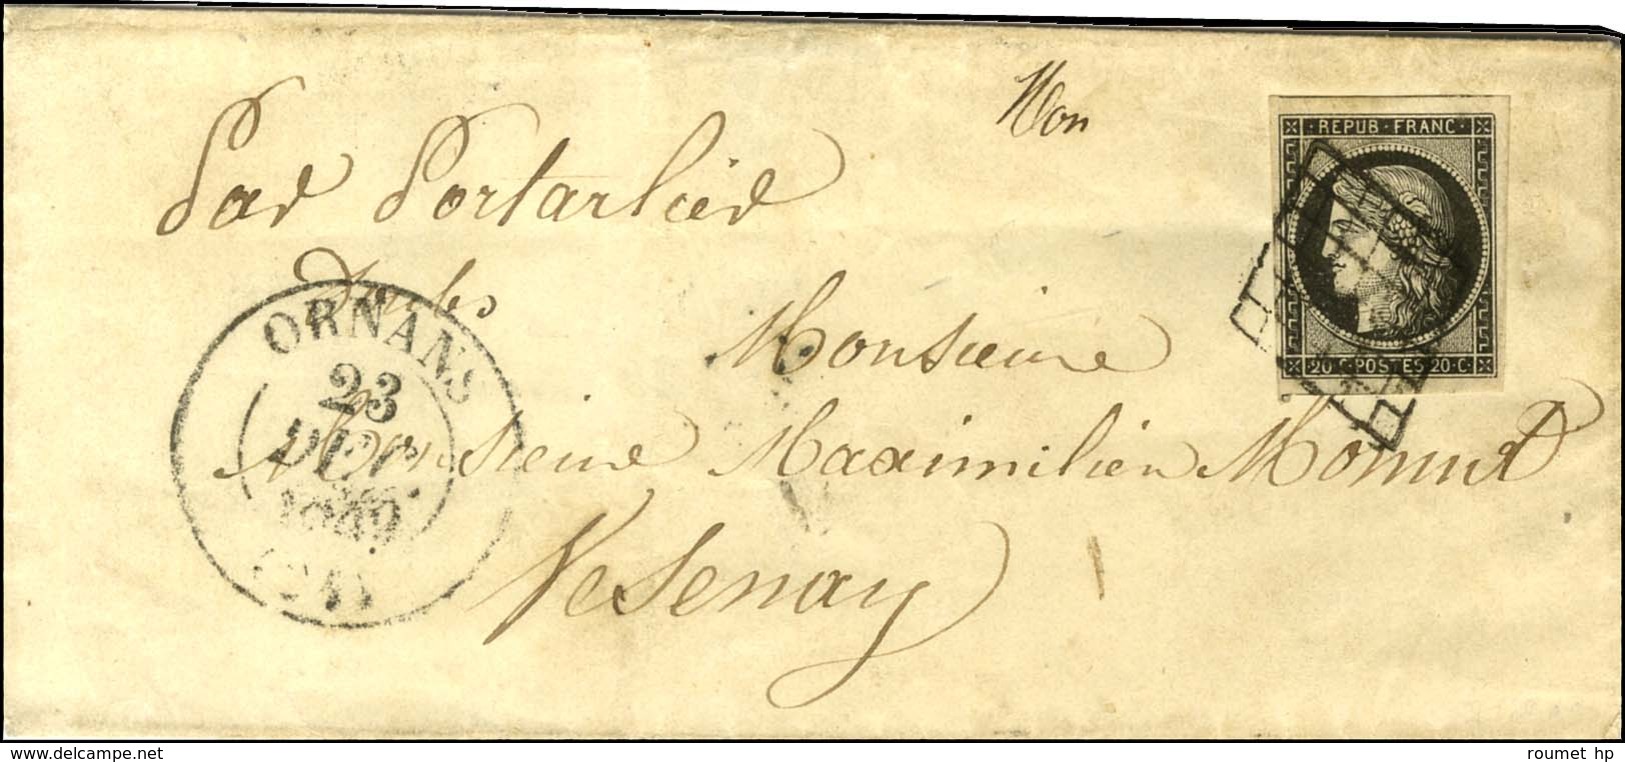 Mon
REPUB · FRANC ·
Par Portarlier
20 C · POSTES · 20 · C ·
Monsieur
ORNANS
23
DEC.
1849
(24)
Monsieur Maximilien Monnet
Vesenay
www.delcampe.net
roumet hp